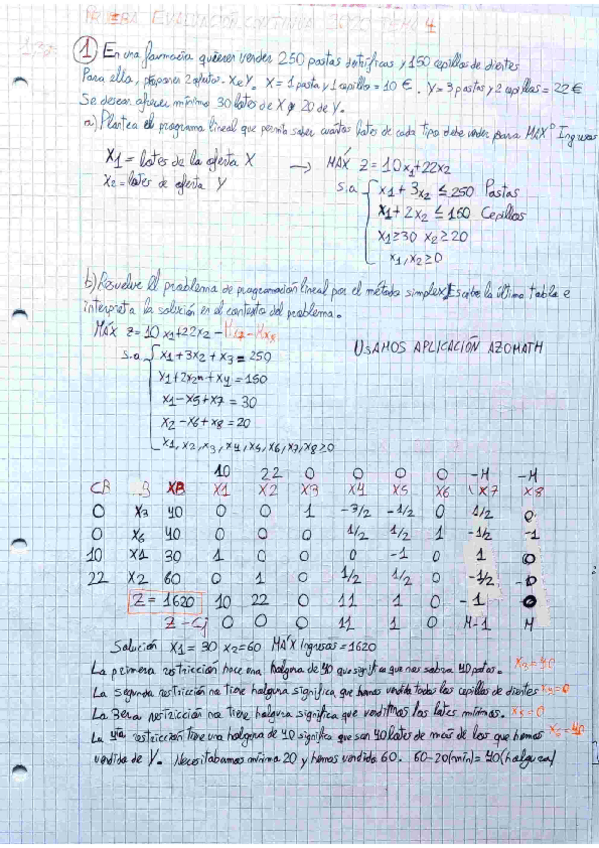 PRUEBA EVALUACIÓN CONTINUA 2020 TEMA 4
① En una farmacia quieren vender 250 pastas dentífricas y 150 cepillos de dientes
Para ella, proponen 2 ofertas. X e Y. X = 1 pasta y 1 cepillo = 10 €. Y = 3 pastas y 2 cepillos = 22 €
Se desean ofrecer mínimo 30 lotes de X y 20 de Y.
a) Plantea el programa lineal que permita saber cuántos lotes de cada tipo debe vender para MAXº Ingresos
X1 = lotes de la oferta X → MAX Z = 10x1 + 22x2
X2 = lotes de oferta Y s.a. { x1 + 3x2 ≤ 250 Pastas
x1 + 2x2 ≤ 150 Cepillos
x1 ≥ 30 x2 ≥ 20
x1, x2 ≥ 0
b) Resuelve el problema de programación lineal por el método simplex. Escribe la última tabla e
interpreta la solución en el contexto del problema.
MÁX Z = 10x1 + 22x2 - Mx7 - Mx8
USAMOS APLICACIÓN AZOMATH
s.a. { x1 + 3x2 + x3 = 250
x1 + 2x2 + x4 = 150
x1 - x5 + x7 = 30
x2 - x6 + x8 = 20
x1, x2, x3, x4, x5, x6, x7, x8 ≥ 0
10 22 0 0 0 0 -M -M
CB B XB X1 X2 X3 X4 X5 X6 X7 X8
0 X3 40 0 0 1 -3/2 -1/2 0 1/2 0
0 X6 40 0 0 0 1/2 1/2 1 -1/2 -1
10 X1 30 1 0 0 0 -1 0 1 0
22 X2 60 0 1 0 1/2 1/2 0 -1/2 -0
Z = 1620 10 22 0 11 1 0 -1 0
Z - Cj 0 0 0 11 1 0 M-1 M
Solución X1 = 30 X2 = 60 MÁX Ingresos = 1620
La primera restricción hace una holgura de 40 que significa que nos sobran 40 patas. X3 = 40
La segunda restricción no tiene holgura significa, que hemos vendido todos los cepillos de dientes X4 = 0
La 3era restricción no tiene holgura significa que vendimos los lotes mínimos. X5 = 0
La 4ta restricción tiene una holgura de 40 significa que son 40 lotes de más de los que hemos
vendido de Y. Necesitabamos mínimo 20 y hemos vendido 60. 60-20(mín) = 40 (holgura)